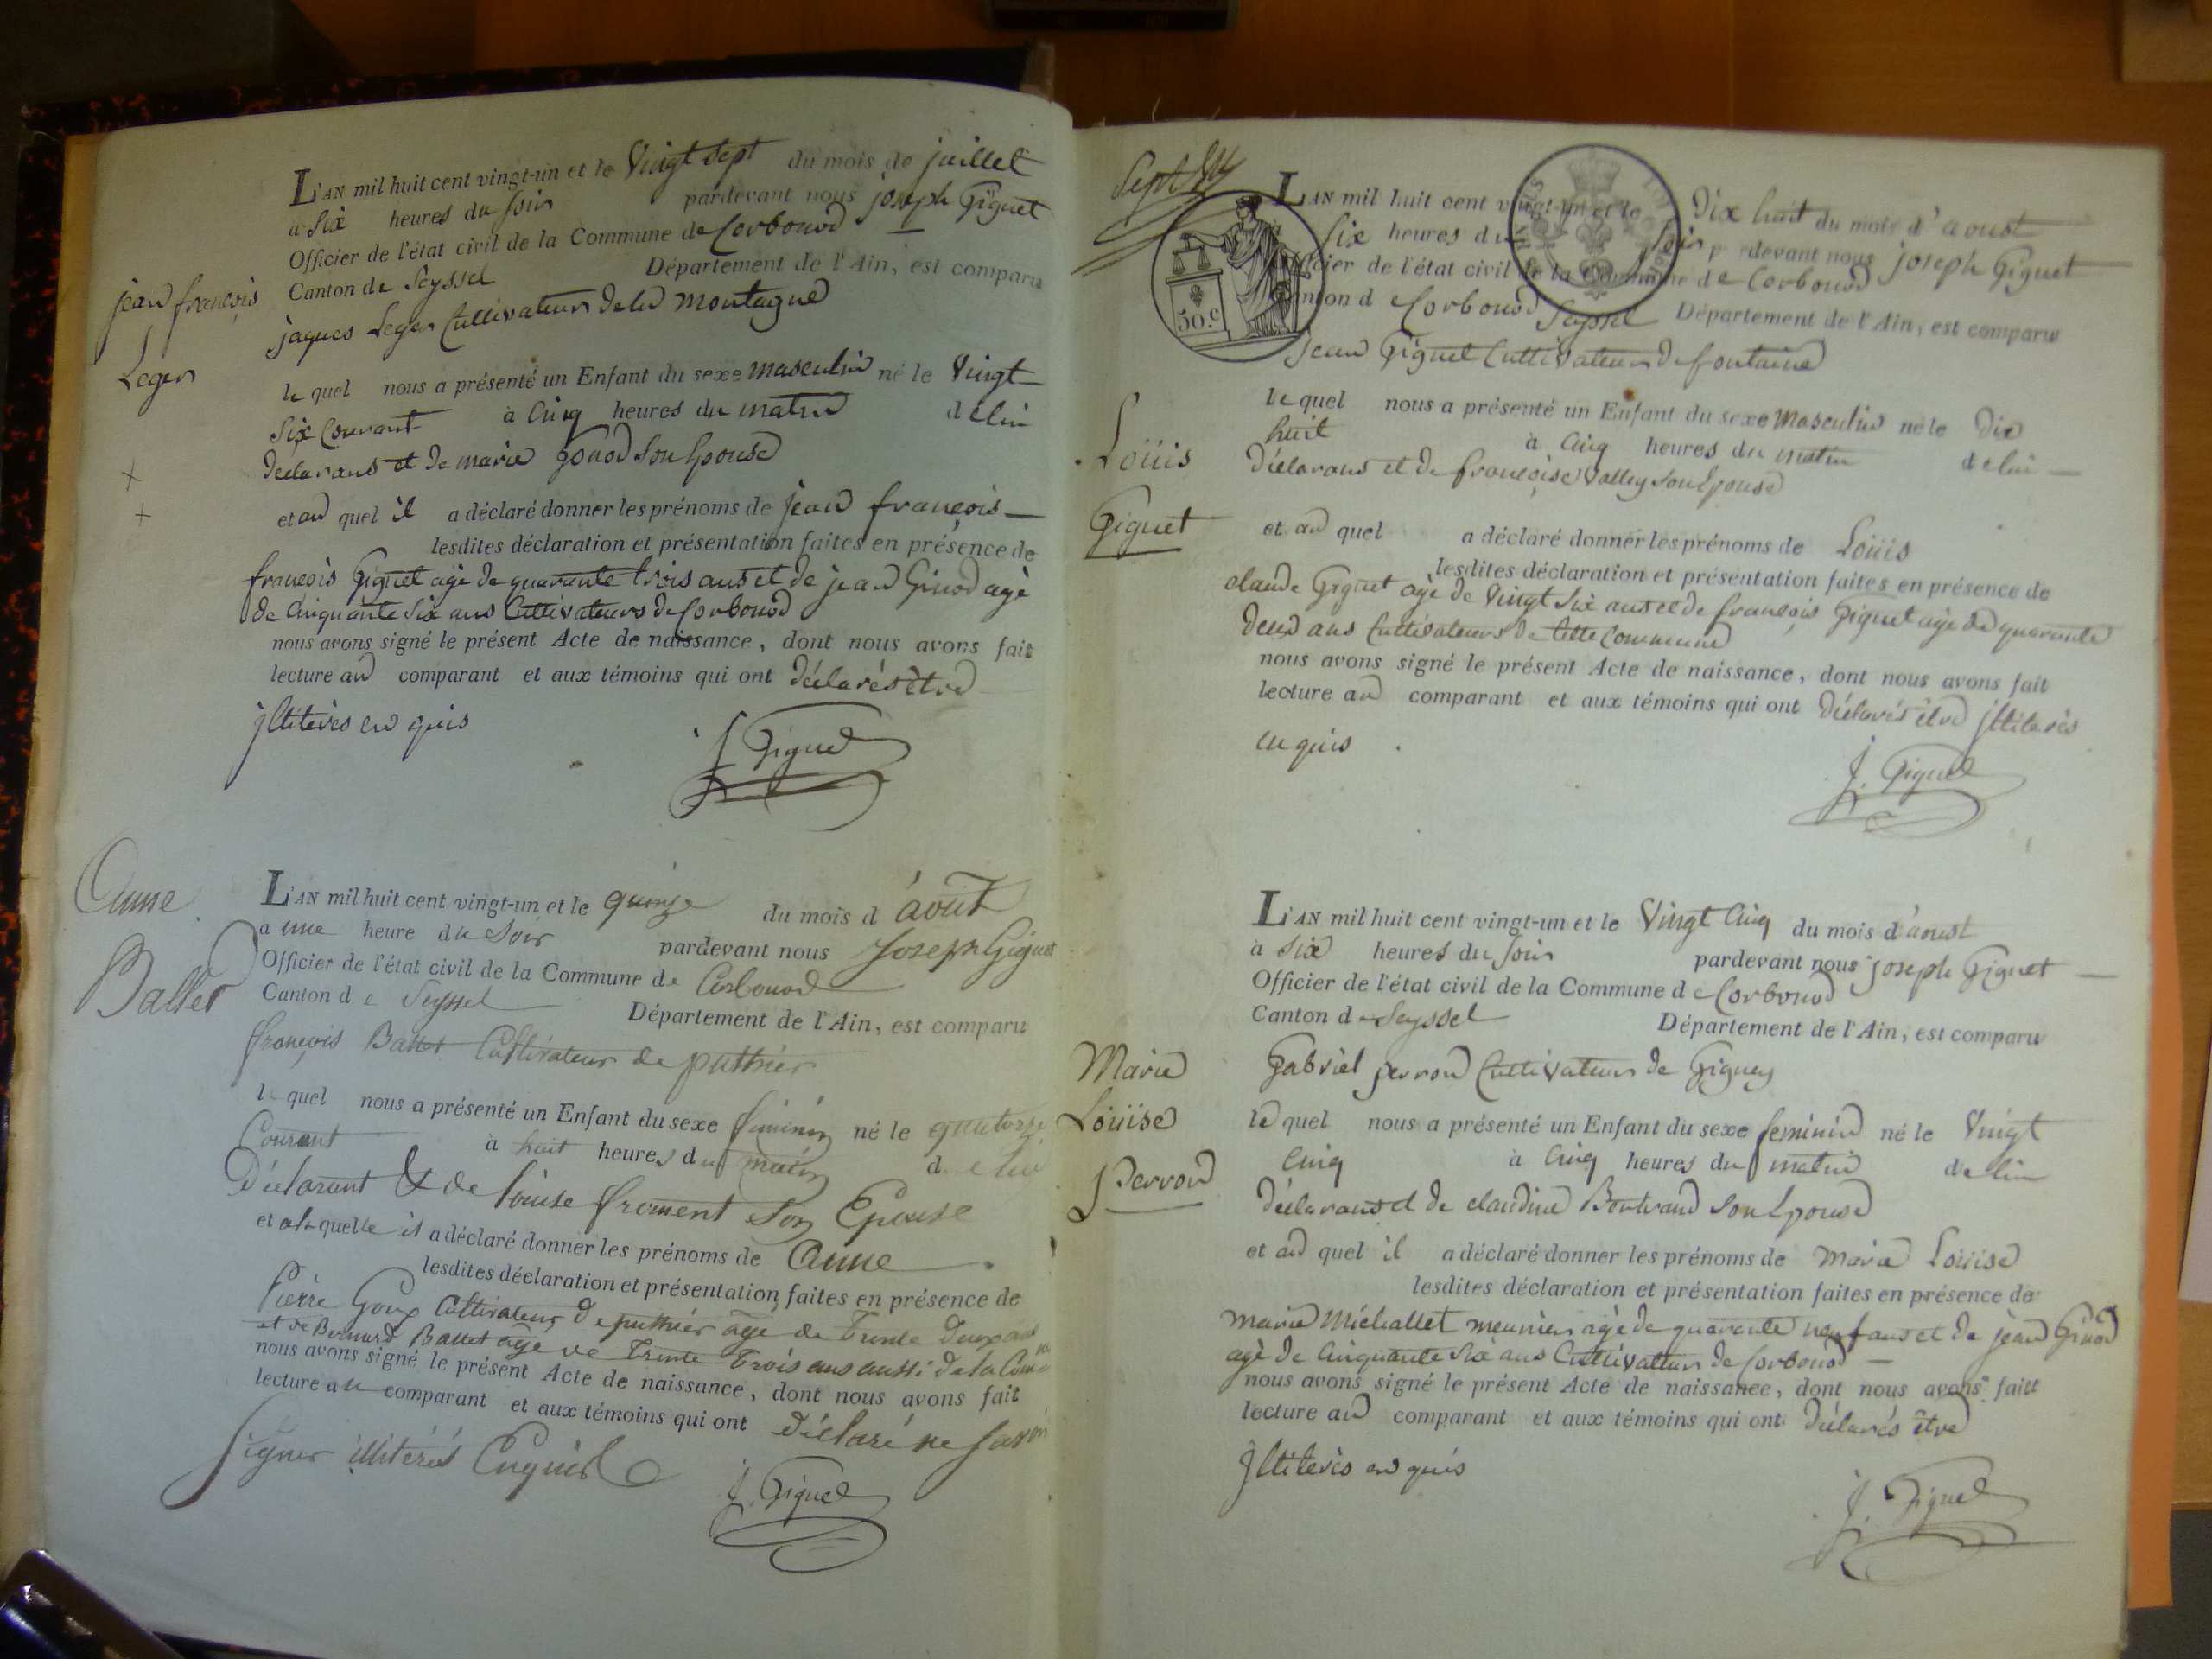 jean françois
Leger
L'AN mil huit cent vingt-un et le Vingt sept du mois de juillet
a Six heures du soir pardevant nous joseph Giguet
Officier de l'état civil de la Commune de Corbonod
Canton de Seyssel Département de l'Ain, est comparu
jaques Leger Cultivateur de la montagne
le quel nous a présenté un Enfant du sexe masculin né le Vingt
Six Courant à Cinq heures du matin de lui
declarans et de marie gonod son Epouse
et au quel il a déclaré donner les prénoms de jean françois
lesdites déclaration et présentation faites en présence de
françois Giguet agé de quarante trois ans et de jean Ginod agé
de Cinquante Six ans Cultivateurs de Corbonod
nous avons signé le présent Acte de naissance, dont nous avons fait
lecture au comparant et aux témoins qui ont déclarés être
jllitérés en quis
J Giguet
Anne
Ballet
L'AN mil huit cent vingt-un et le quinze du mois d'août
a une heure du Soir pardevant nous Joseph Giguet
Officier de l'état civil de la Commune de Corbonod
Canton de Seyssel Département de l'Ain, est comparu
françois Ballet Cultivateur de puthier
le quel nous a présenté un Enfant du sexe féminin né le quatorze
Courant à huit heures du matin de lui
Déclarant & de louise froment son Epouse
et a laquelle il a déclaré donner les prénoms de Anne
lesdites déclaration et présentation faites en présence de
Pierre Goux Cultivateur de puthier âgé de Trente Deux ans
et de Bernard Ballet agé de Trente Trois ans aussi de la Com-ne
nous avons signé le présent Acte de naissance, dont nous avons fait
lecture au comparant et aux témoins qui ont Déclaré ne savoir
signer illitérés Enquis
J. Giguet
Sept
50.c
Louis
Giguet
L'AN mil huit cent vingt-un et le Dix huit du mois d'aoust
Six heures du Soir pardevant nous joseph Giguet
Officier de l'état civil de la Commune de Corbonod
Canton de Corbonod Seyssel Département de l'Ain, est comparu
Jean Giguet Cultivateur de fontaine
le quel nous a présenté un Enfant du sexe masculin né le dix
huit à Cinq heures du matin de lui
déclarans et de françoise Valley son Epouse
et au quel a déclaré donner les prénoms de Loüis
lesdites déclaration et présentation faites en présence de
claude Giguet agé de Vingt Six ans et de françois Giguet agé de quarante
deux ans Cultivateurs de Cette Commune
nous avons signé le présent Acte de naissance, dont nous avons fait
lecture au comparant et aux témoins qui ont déclarés être jllitérés
en quis
J. Giguet
Marie
Loüise
Perron
L'AN mil huit cent vingt-un et le Vingt Cinq du mois d'aoust
à Six heures du Soir pardevant nous joseph Giguet
Officier de l'état civil de la Commune de Corbonod
Canton de Seyssel Département de l'Ain, est comparu
Gabriel perron Cultivateur de Gigney
le quel nous a présenté un Enfant du sexe feminin né le Vingt
Cinq à Cinq heures du matin de lui
déclarans et de claudine Bertrand son Epouse
et au quel il a déclaré donner les prénoms de marie Loüise
lesdites déclaration et présentation faites en présence de
marie Michallet meunier agé de quarante neuf ans et de jean Ginod
agé de Cinquante Six ans Cultivateur de Corbonod
nous avons signé le présent Acte de naissance, dont nous avons fait
lecture au comparant et aux témoins qui ont déclarés être
jllitérés en quis
J. Giguet